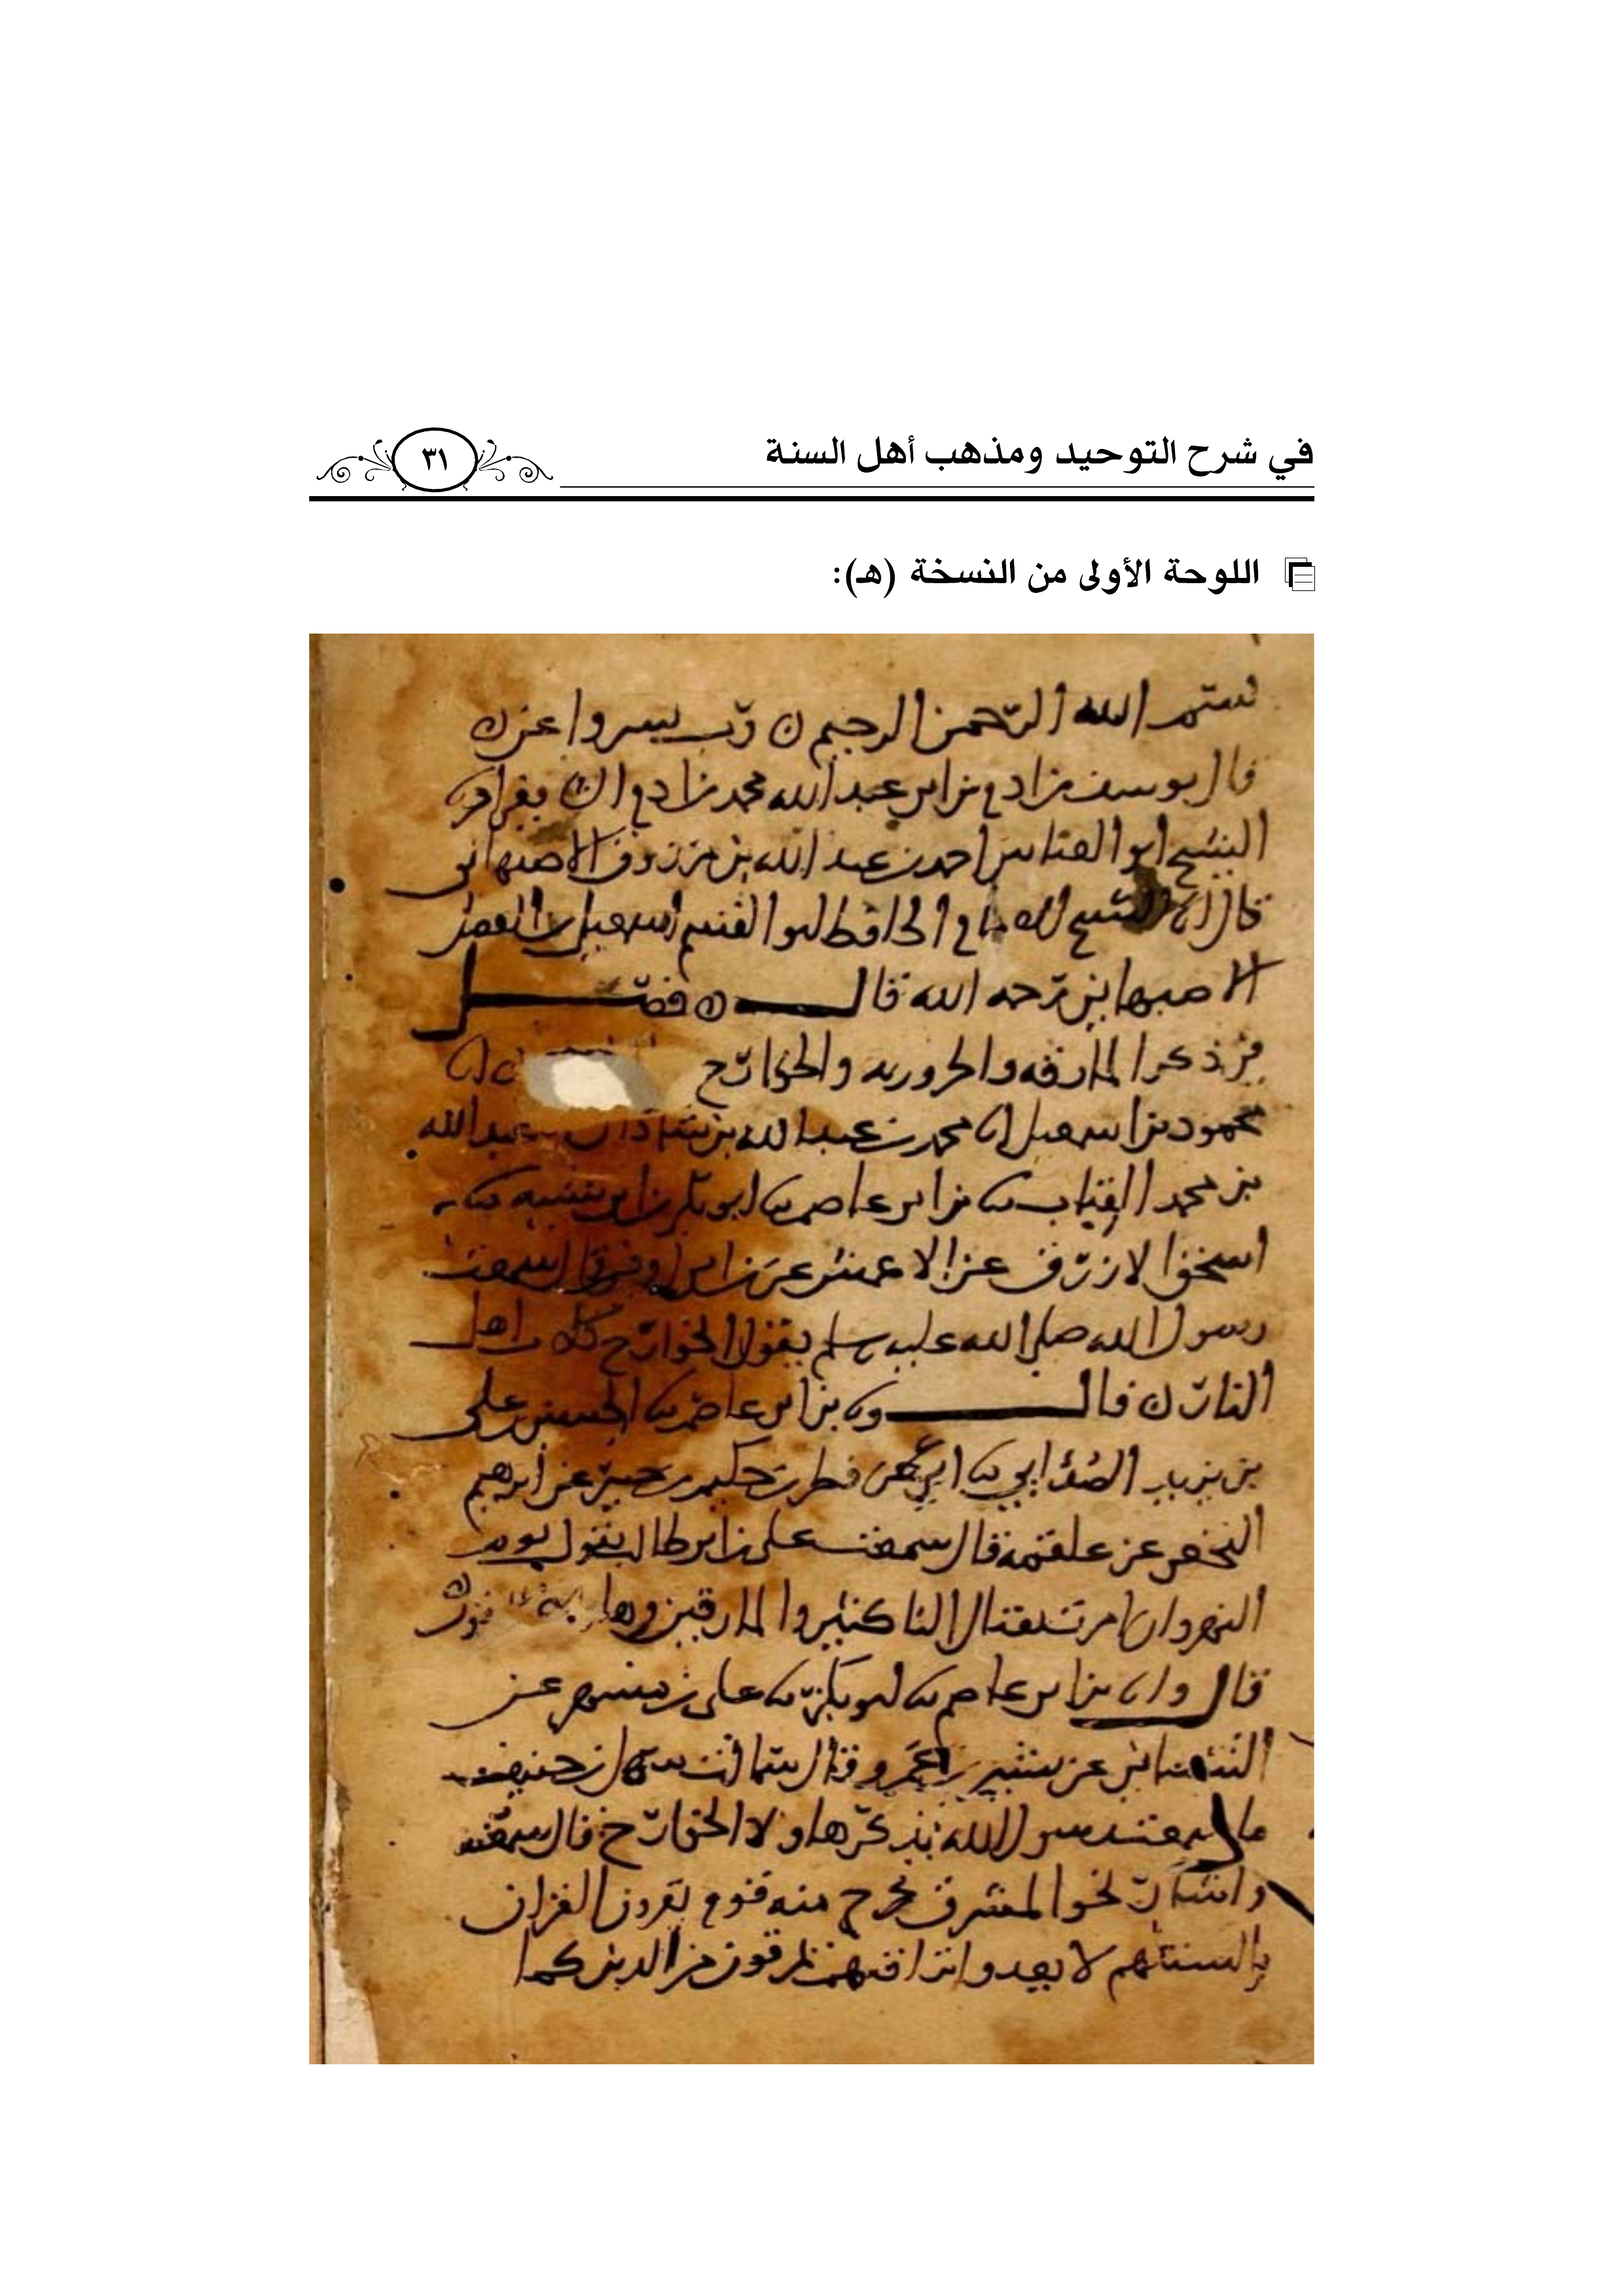 في شرح التوحيد ومذهب أهل السنة
٣١
اللوحة الأولى من النسخة (هـ):
بسم الله الرحمن الرحيم رب يسر واعن
قال يوسف بن ابي عبد الله محمد بن
الشيخ ابو العباس احمد بن عبد الله بن مرزوق الاصبهاني
قال الشيخ الحافظ ابو القسم اسمعيل بن الفضل
الاصبهاني رحمه الله قال فصل
في ذكر المارقه والحروريه والخوارج
محمود بن اسمعيل محمد بن عبد الله بن شاذان عبد الله
بن محمد القباب بن ابي عاصم ابو بكر بن ابي شيبه
اسحق الازرق عن الاعمش عن ابن ابي اوفى قال سمعت
رسول الله صلى الله عليه وسلم يقول الخوارج كلاب اهل
النار قال بن ابي عاصم الحسين بن علي
بن يزيد الصدائي ابي عن فطر بن حكيم بن جبير عن ابرهيم
النخعي عن علقمه قال سمعت علي بن ابي طالب يقول يوم
النهروان امرت بقتال الناكثين والمارقين
قال بن ابي عاصم ابو بكر علي بن مسهر عن
الشيباني عن يسير بن عمرو قال سالت سهل بن حنيف
ما سمعت رسول الله يذكر هاولا الخوارج قال سمعته
واشار نحو المشرق يخرج منه قوم يقرون القران
بالسنتهم لا يعدوا تراقيهم يمرقون من الدين كما